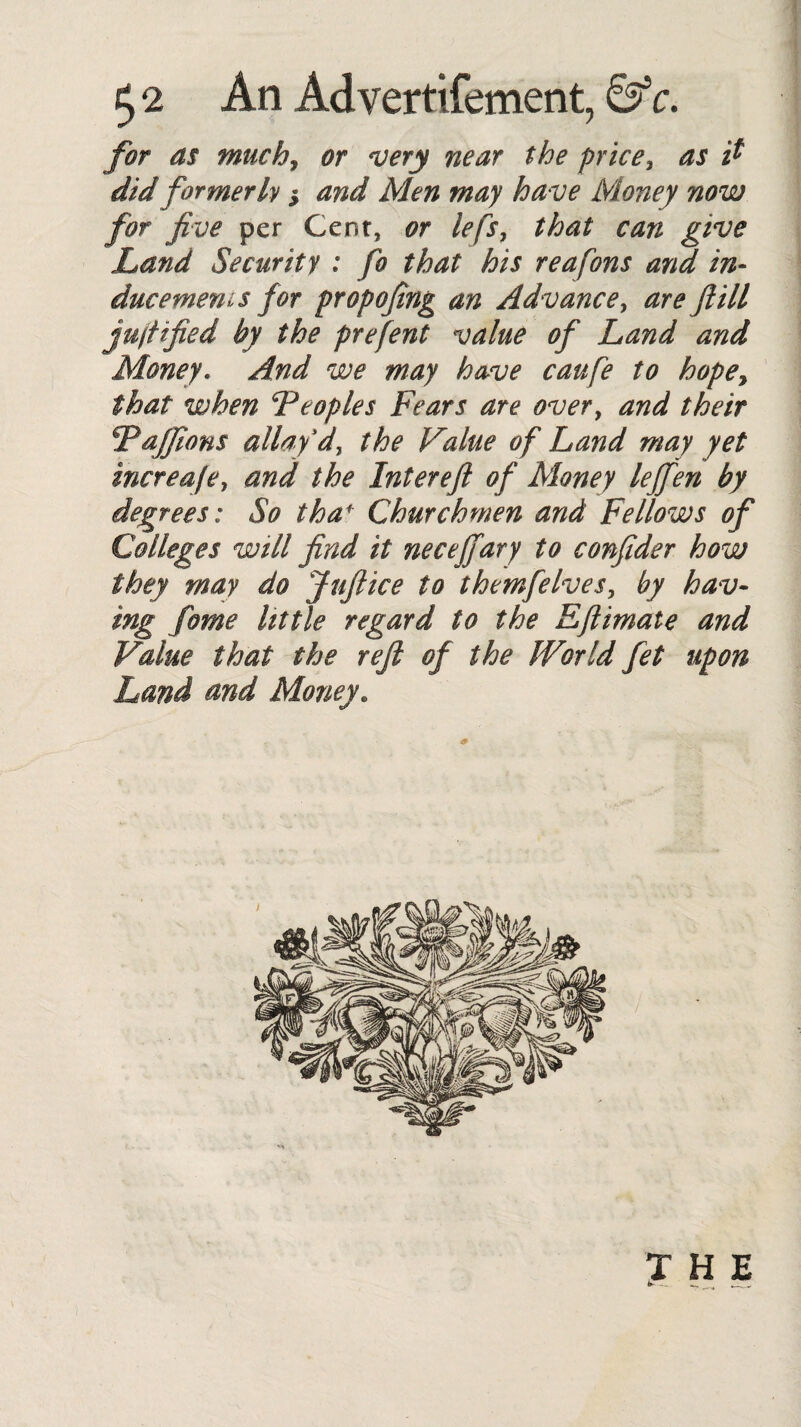 52 An Advertiſement, &c.
for as much, or very near the price, as it
did formerly; and Men may have Money now
for five per Cent, or leſs, that can give
Land Security : ſo that his reaſons and in-
ducements for propoſing an Advance, are ſtill
juſtified by the preſent value of Land and
Money. And we may have cauſe to hope,
that when Peoples Fears are over, and their
Paſſions allay'd, the Value of Land may yet
increaſe, and the Intereſt of Money leſſen by
degrees: So that Churchmen and Fellows of
Colleges will find it neceſſary to conſider how
they may do Juſtice to themſelves, by hav-
ing ſome little regard to the Eſtimate and
Value that the reſt of the World ſet upon
Land and Money.
THE